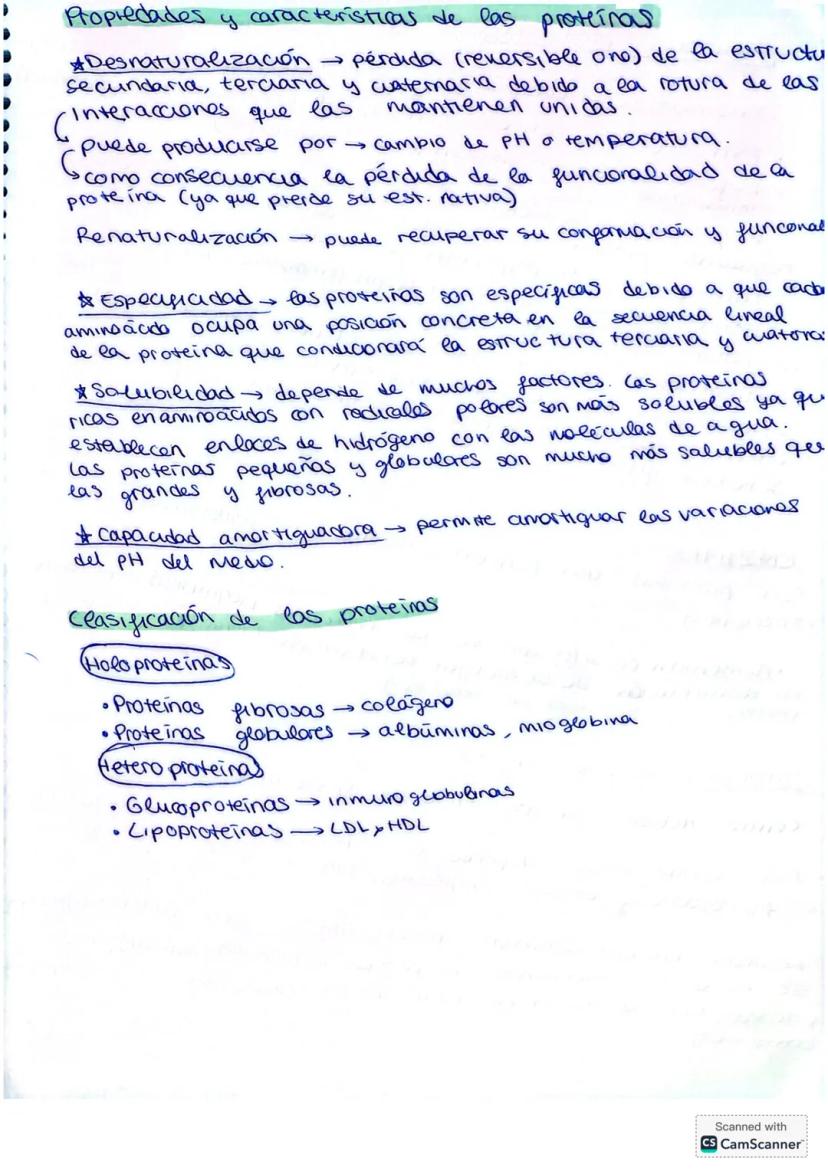 Propiedades y características de las proteínas
★Desnaturalización → pérdida (reversible o no) de la estructu
secundaria, terciaria y cuaternaria debido a la rotura de las
interacciones que las mantienen unidas.
puede producirse por → cambio de PH o temperatura.
↳como consecuencia la pérdida de la funcionalidad de la
proteína (ya que pierde su est. nativa)
Renaturalización → puede recuperar su conformación y funcional
★ Especificidad → las proteínas son específicas debido a que cada
aminoácido ocupa una posición concreta en la secuencia lineal
de la proteína que condicionará la estructura terciaria y
★Solubilidad → depende de muchos factores. Las proteínas
ricas en aminoácidos con radicales polares son más solubles ya qu
establecen enlaces de hidrógeno con las moléculas de agua.
Las proteínas pequeñas y globulares son mucho más solubles que
las grandes y fibrosas.
★ Capacidad amortiguadora → permite amortiguar las variaciones
del PH del medio.
Clasificación de las proteínas
Holoproteínas
• Proteínas fibrosas → colágeno
• Proteínas globulares → albúminas, mioglobina
Heteroproteínas
• Glucoproteínas → inmunoglobulinas
• Lipoproteínas → LDL y HDL
Scanned with
CS CamScanner